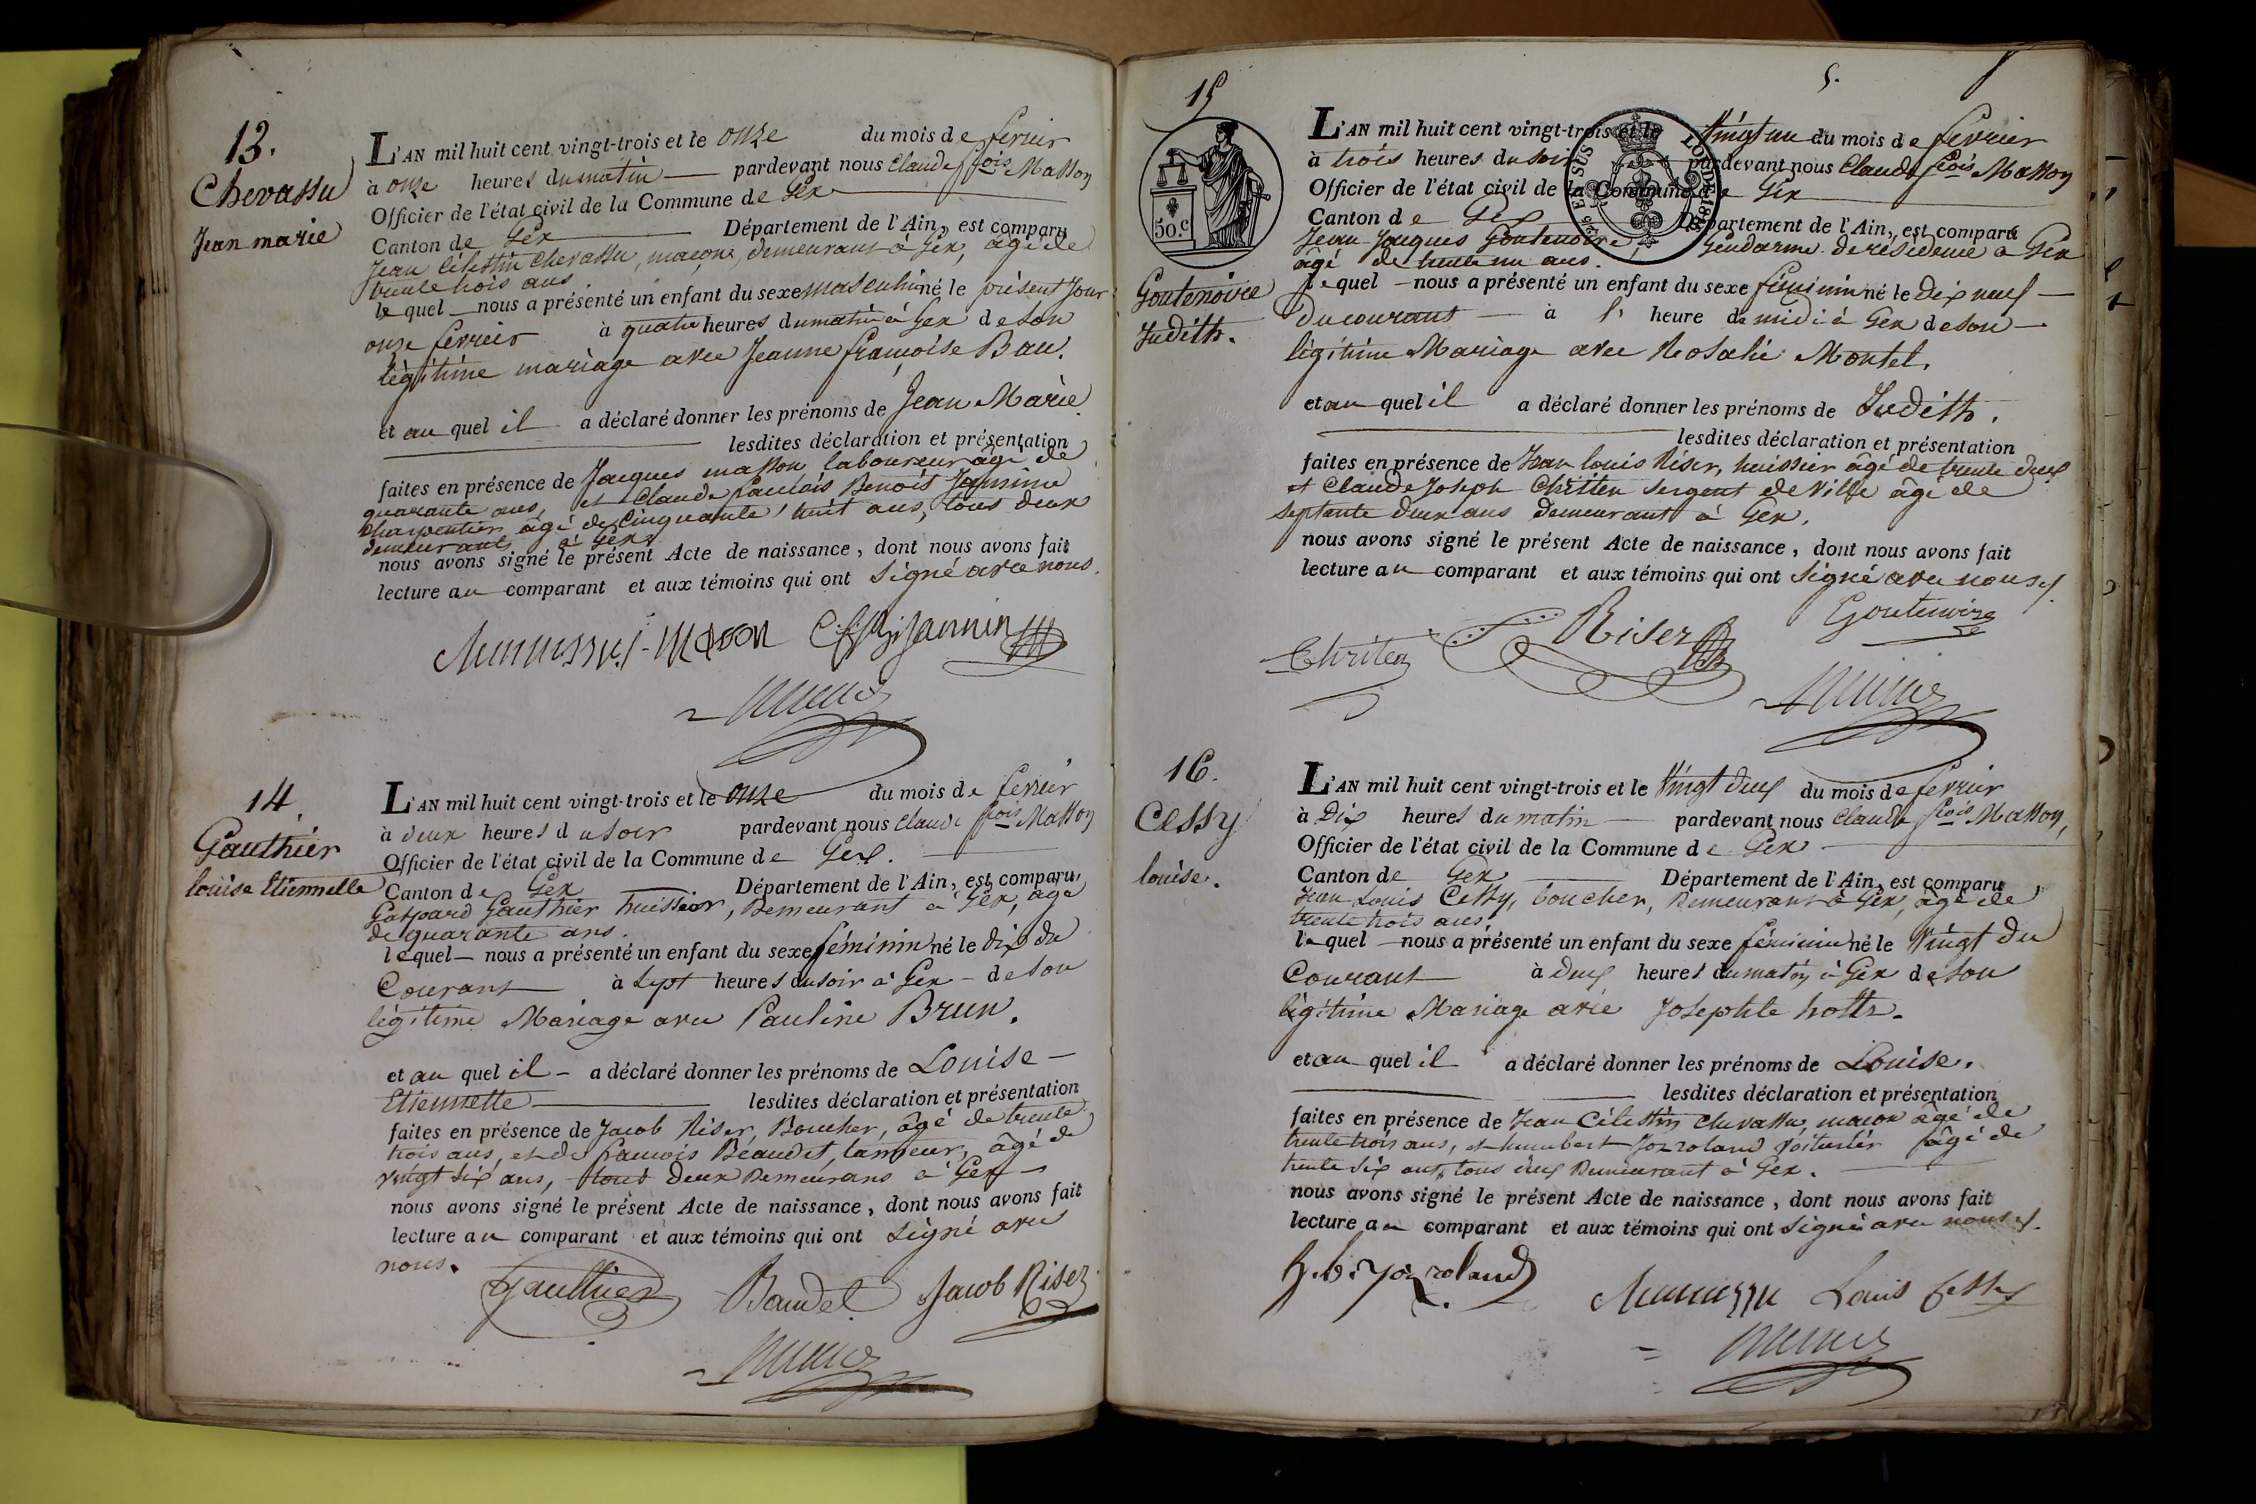 13.
Chevassu
Jean marie
L'AN mil huit cent vingt-trois et le onze du mois de fevrier
à onze heures du matin pardevant nous Claude fcois Masson
Officier de l'état civil de la Commune de Gex
Canton de Gex Département de l'Ain, est comparu
Jean Célestin Chevassu, maçon, demeurant à Gex, âgé de
trente trois ans
lequel nous a présenté un enfant du sexe masculin né le présent jour
onze fevrier à quatre heures du matin à Gex de son
légitime mariage avec Jeanne françoise Bau.
et au quel il a déclaré donner les prénoms de Jean Marie
lesdites déclaration et présentation
faites en présence de Jacques masson laboureur âgé de
quarante ans, et Claude francois Benoit Jannin
charpentier âgé de cinquante huit ans, tous deux
demeurants à Gex
nous avons signé le présent Acte de naissance, dont nous avons fait
lecture au comparant et aux témoins qui ont signé avec nous.
masson Jannin
14.
Gauthier
louise Etiennette
L'AN mil huit cent vingt-trois et le onze du mois de fevrier
à deux heures du soir pardevant nous Claude fcois Masson
Officier de l'état civil de la Commune de Gex.
Canton de Gex Département de l'Ain, est comparu
Gaspard Gauthier huissier, Demeurant à Gex, âgé
de quarante ans.
lequel nous a présenté un enfant du sexe féminin né le dix du
Courant à sept heures du soir à Gex de son
légitime Mariage avec Pauline Brun.
et au quel il a déclaré donner les prénoms de Louise
Etiennette lesdites déclaration et présentation
faites en présence de Jacob Riser, Boucher, âgé de trente
trois ans, et de francois Beaudet, tanneur, âgé de
vingt six ans, tous deux Demeurans à Gex
nous avons signé le présent Acte de naissance, dont nous avons fait
lecture au comparant et aux témoins qui ont signé avec
nous.
Gauthier Baudet Jacob Riser
5.
15
50.c
LOI DE 1816
Goutenoire
Judith.
L'AN mil huit cent vingt-trois et le vingt un du mois de fevrier
à trois heures du soir pardevant nous Claude fcois Masson
Officier de l'état civil de la Commune de Gex
Canton de Gex Département de l'Ain, est comparu
Jean-Jacques Goutenoire, Gendarme de résidence à Gex
âgé de trente un ans.
lequel nous a présenté un enfant du sexe féminin né le Dix neuf
Du courant à heure de midi à Gex de son
légitime Mariage avec Rosalie Montel.
et au quel il a déclaré donner les prénoms de Judith.
lesdites déclaration et présentation
faites en présence de Jean louis Riser, huissier âgé de trente deux
et Claude Joseph Christen Sergent de Ville âgé de
septante deux ans demeurant à Gex.
nous avons signé le présent Acte de naissance, dont nous avons fait
lecture au comparant et aux témoins qui ont signé avec nous.
Goutenoire
Riser
Christen
16.
Cessy
louise.
L'AN mil huit cent vingt-trois et le vingt deux du mois de fevrier
à Dix heures du matin pardevant nous Claude fcois Masson,
Officier de l'état civil de la Commune de Gex
Canton de Gex Département de l'Ain, est comparu
Jean Louis Cessy, boucher, Demeurant à Gex, âgé de
trente trois ans,
lequel nous a présenté un enfant du sexe féminin né le vingt du
Courant à deux heures du matin à Gex de son
légitime Mariage avec Josephte
et au quel il a déclaré donner les prénoms de Louise.
lesdites déclaration et présentation
faites en présence de Jean Célestin Chevassu, maçon âgé de
trente trois ans, et humbert Jozroland voiturier âgé de
trente six ans, tous deux Demeurant à Gex.
nous avons signé le présent Acte de naissance, dont nous avons fait
lecture au comparant et aux témoins qui ont signé avec nous.
Louis Cessy